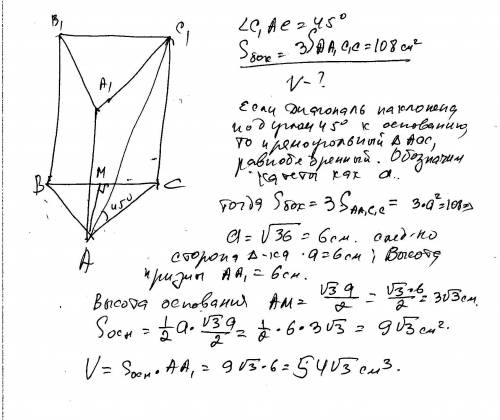 B₁ C₁
∠C₁AC = 45°
Sбок = 3SAA₁C₁C = 108 см²
V - ?
A₁
Если диагональ наклонена
под углом 45° к основанию,
то прямоугольный Δ
равнобедренный. Обозначим
катеты как a.
B M C
45°
A
тогда Sбок = 3SAA₁C₁C = 3·a² = 108 ⇒
a = √36 = 6 см. след-но
сторона Δ-ка a = 6 см; Высота
призмы AA₁ = 6 см.
Высота основания AM = √3a/2 = √3·6/2 = 3√3 см.
Sосн = 1/2 a · √3a/2 = 1/2 · 6 · 3√3 = 9√3 см².
V = Sосн · AA₁ = 9√3 · 6 = 54√3 см³.